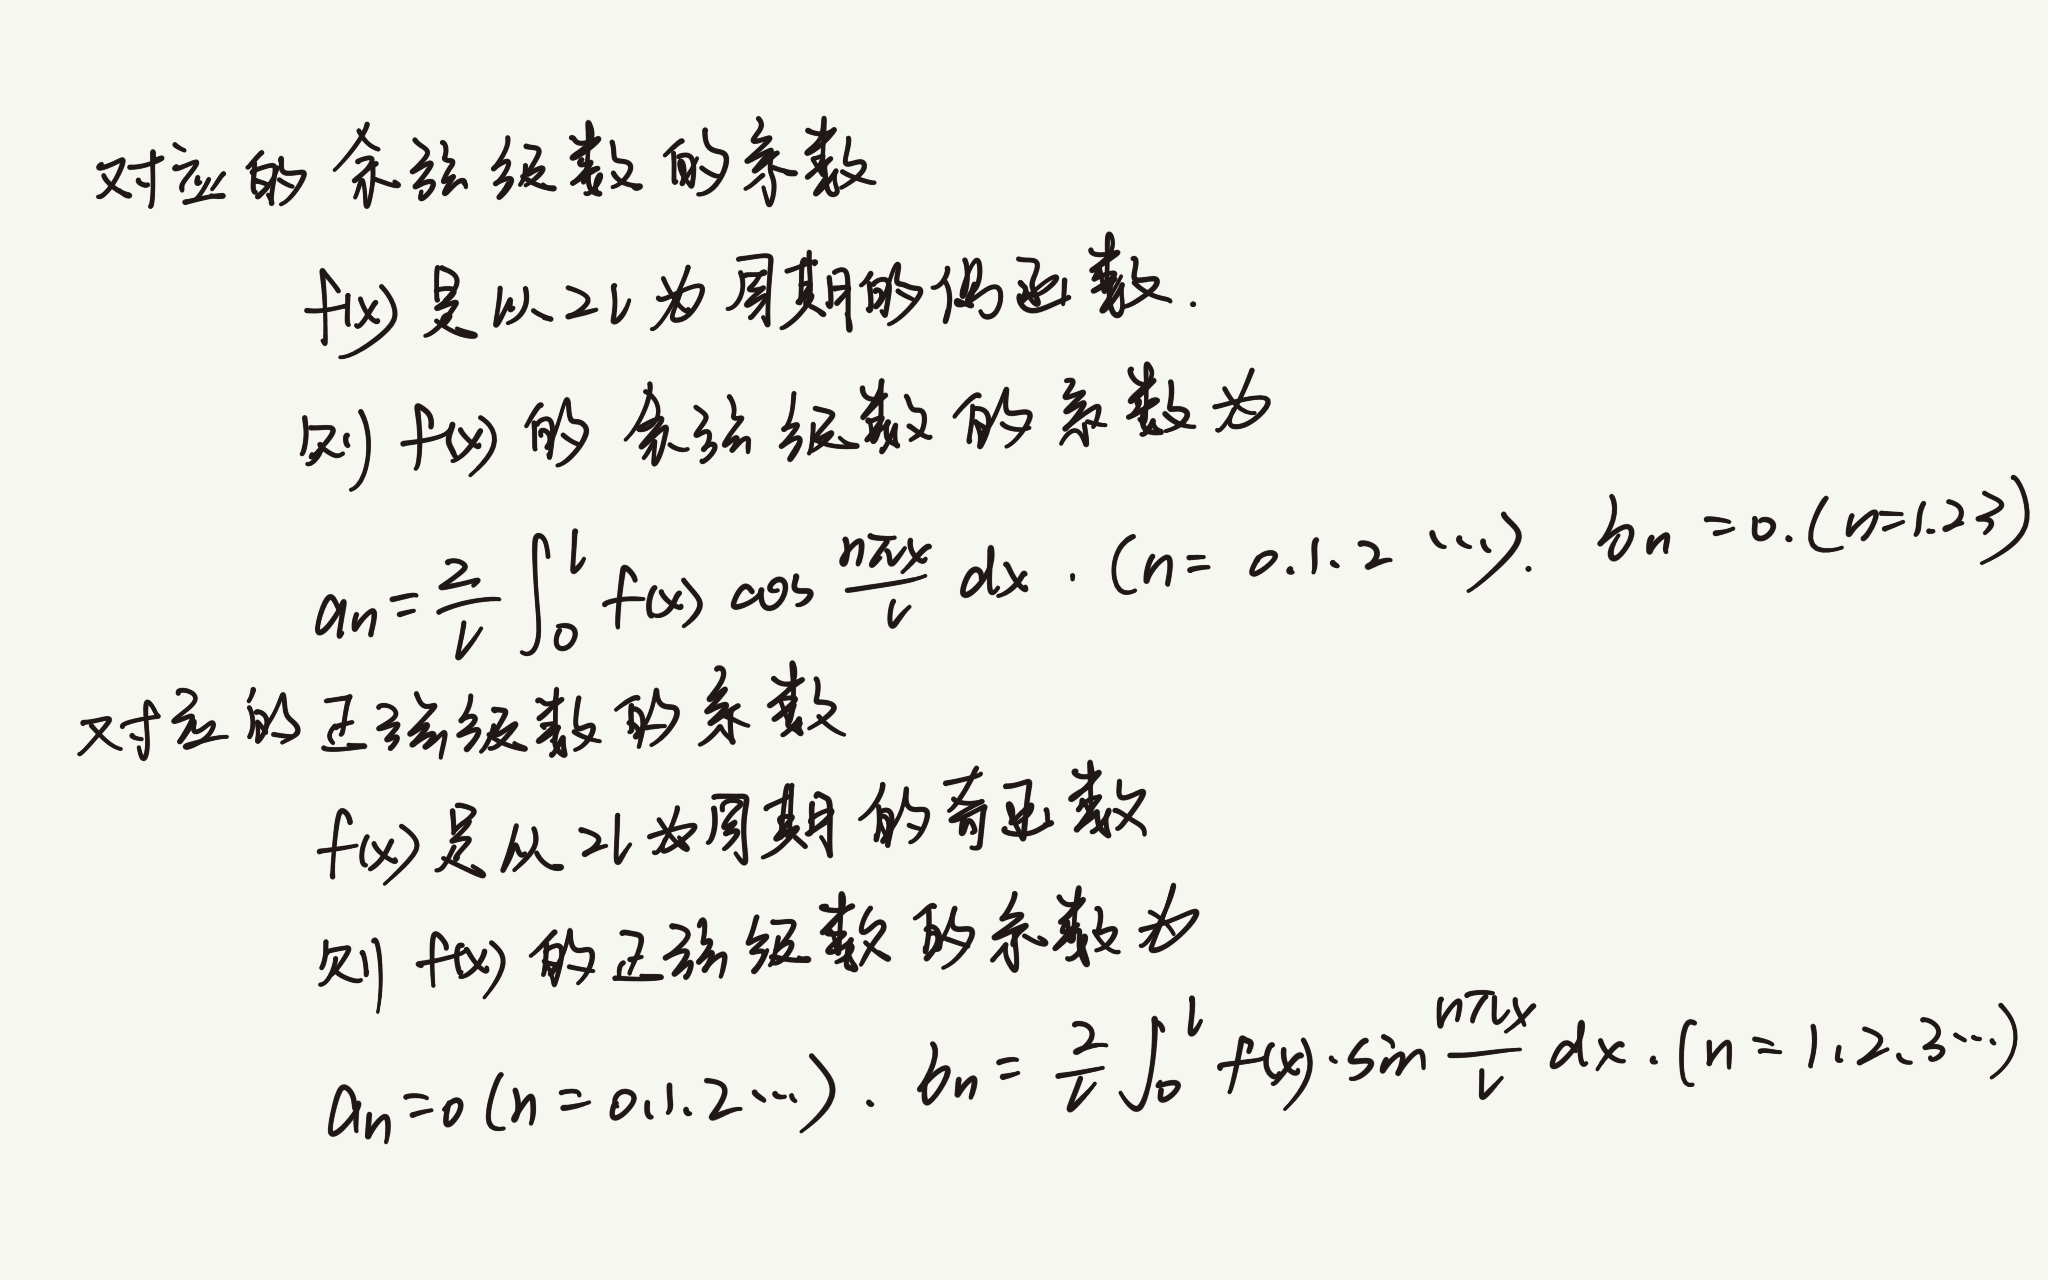 对应的余弦级数的系数
f(x) 是以 2l 为周期的偶函数.
则 f(x) 的余弦级数的系数为
aₙ = 2/l ∫₀ˡ f(x) cos nπx/l dx . (n = 0.1.2 ⋯). bₙ = 0. (n=1.2 3)
对应的正弦级数的系数
f(x) 是以 2l 为周期的奇函数
则 f(x) 的正弦级数的系数为
aₙ = 0 (n = 0.1.2 ⋯) . bₙ = 2/l ∫₀ˡ f(x) · sin nπx/l dx . (n = 1.2.3⋯)